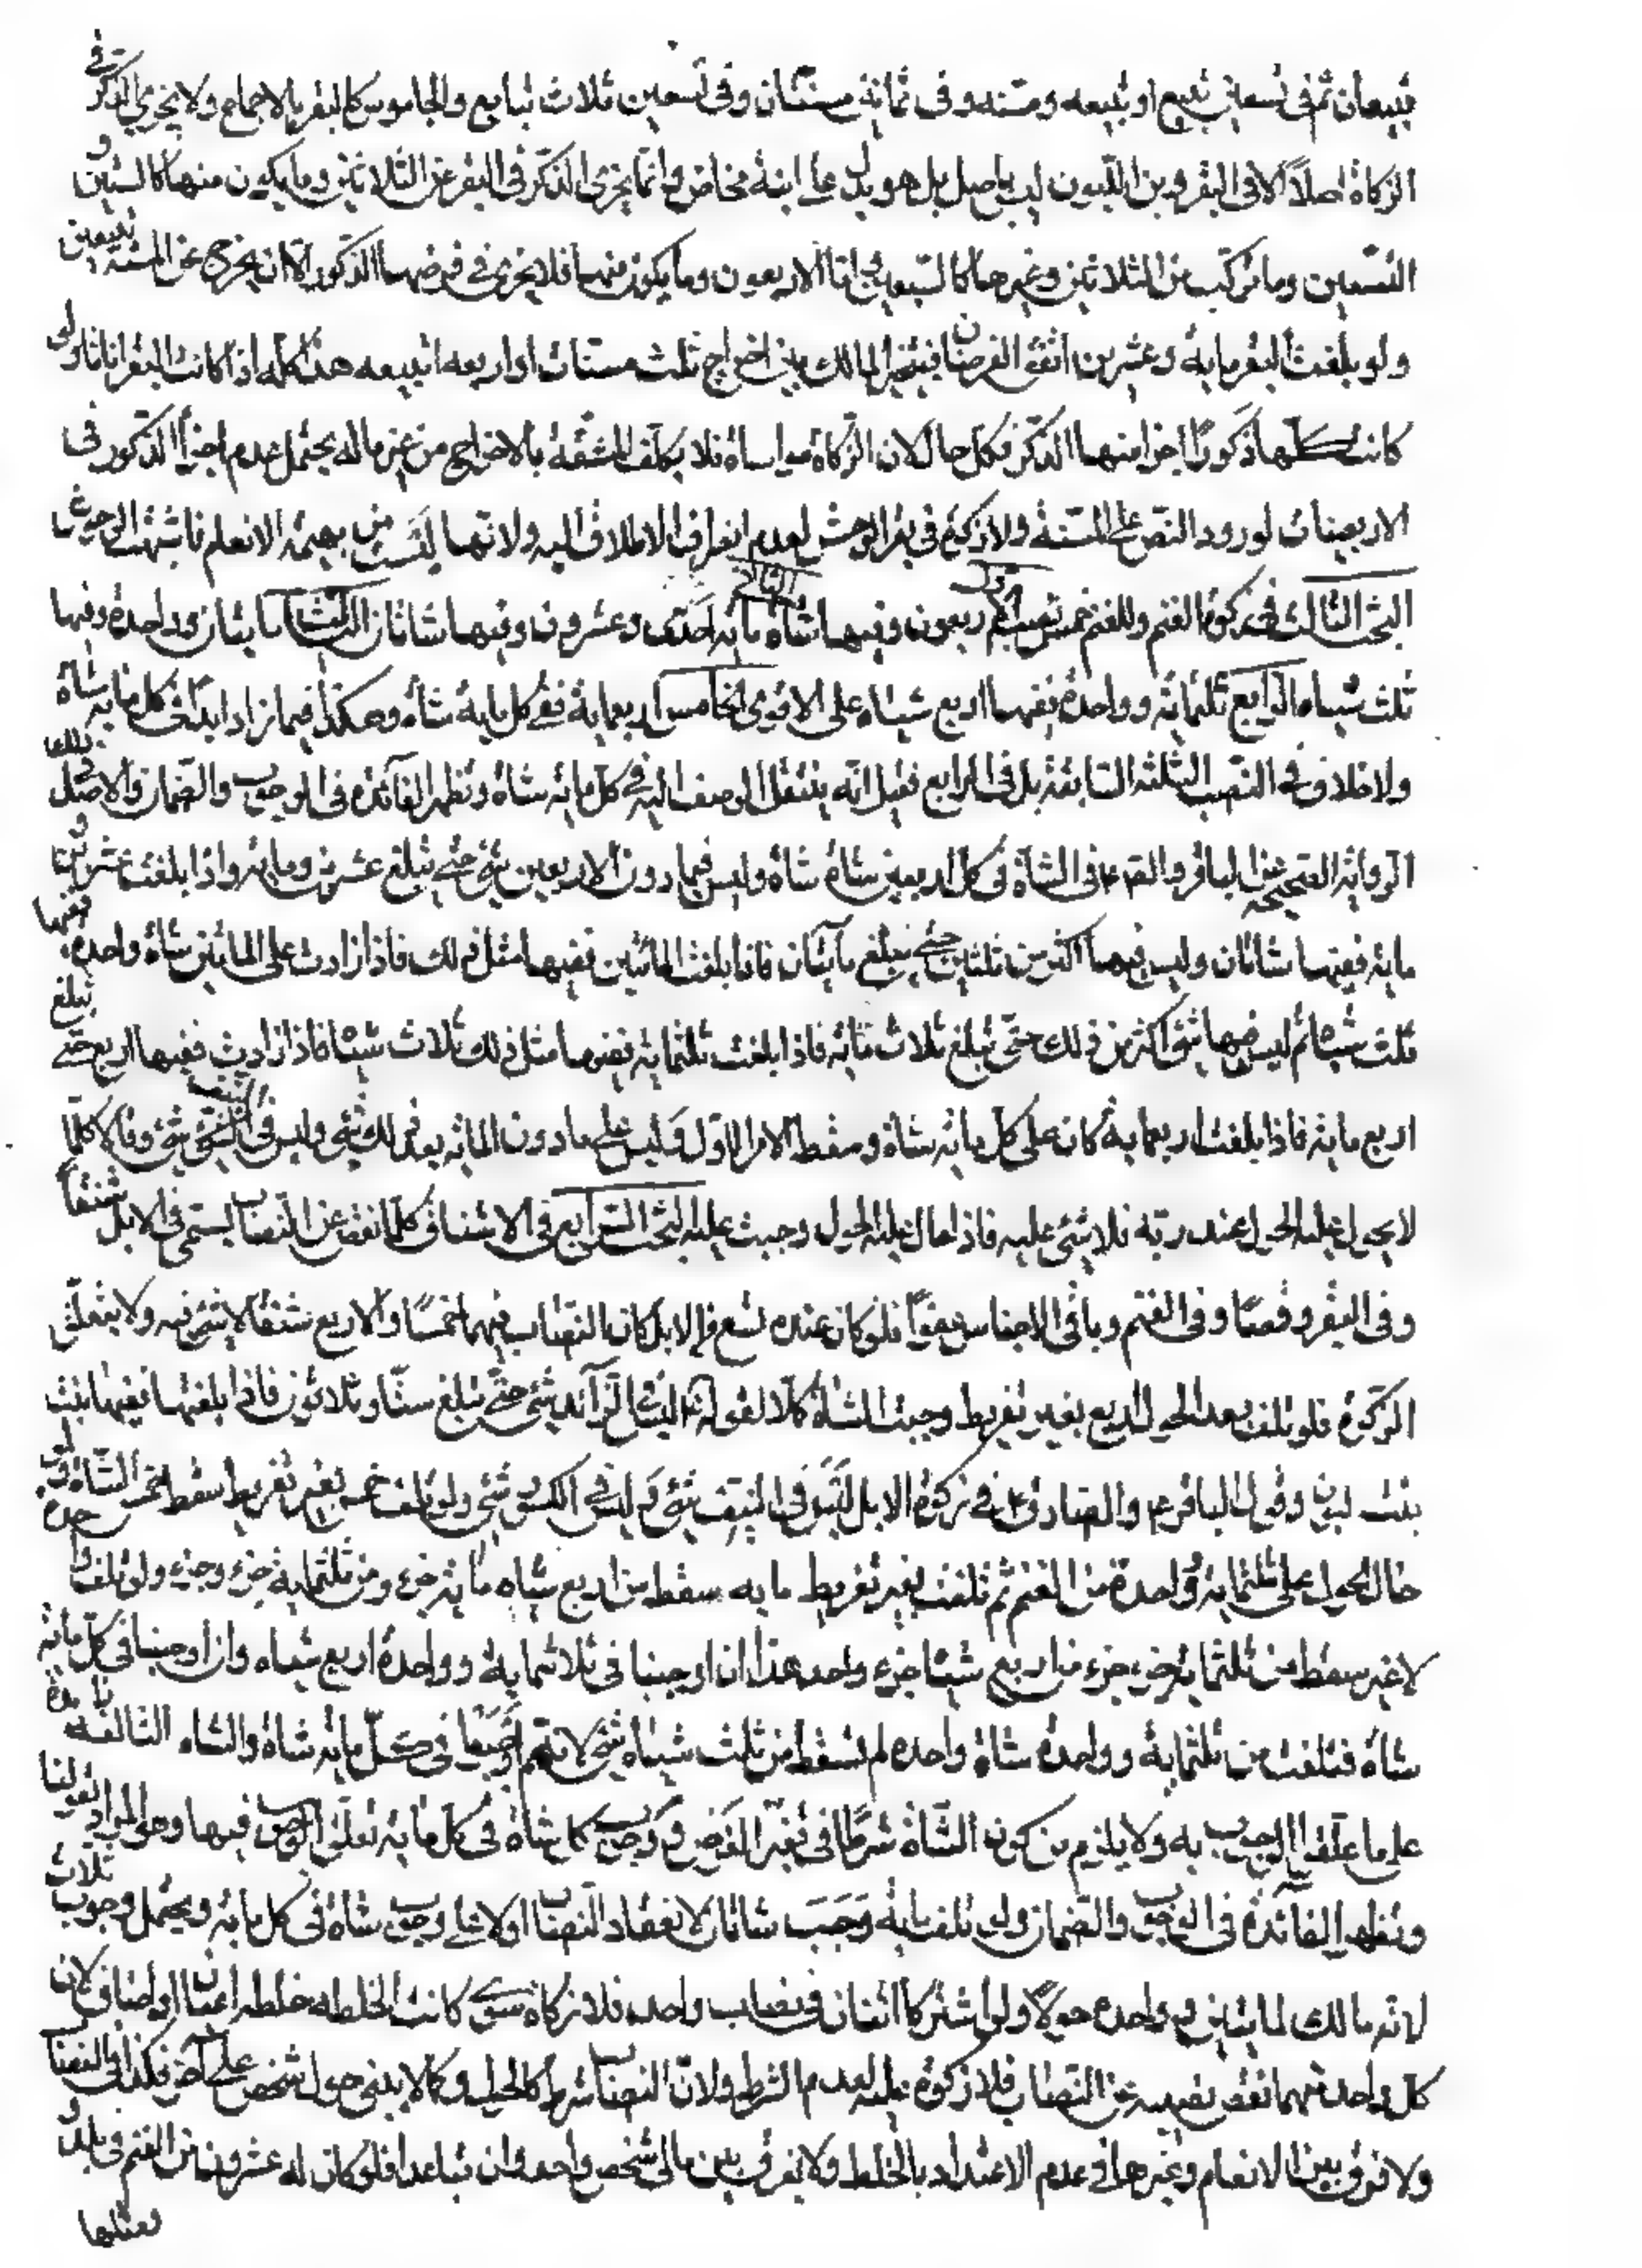 تبيعان ثم في سبعين تبيع او تبيعه ومسنه وفي ثمانين مسنتان وفي تسعين ثلاث تبايع والجاموس كالبقر بالاجماع ولا يجزي الذكر في
الزكاة اصلاً الا في البقر وبن اللبون ليس باصيل بل هو بدل عن ابنة مخاض وانما يجزي الذكر في البقر عن الثلاثين وما يكون منها كالستين و
التسعين وما تركب من الثلاثين وغيرها كالسبعين اما الاربعون وما يكون منها فلا يجزي في فرضها الذكور الا ان يخرج عن المسنه تبيعين
ولو بلغت البقر ماية وعشرين اتفق الفرضان فيتخير المالك بين اخراج ثلث مسنات او اربعه اتبيعه هذا كله اذا كانت البقر اناثا ولو
كانت كلها ذكورًا اجزا منها الذكر فكل حال لان الزكاة مواساة فلا يكلف المشقة بالاخراج من غير ماله يحتمل عدم اجزأ الذكور في
الاربعينات لورود النص على المسنة ولا زكوة في بقر الوحش لعدم انصراف الاطلاق اليه ولانها ليست من بهيمة الانعام فاشبهت الوحوش
البحث الثالث في زكوة الغنم وللغنم خمس نصب الاول اربعون وفيها شاة الثاني مايه احدى وعشرون وفيها شاتان الثالث مايتان وواحدة وفيها
ثلث شياه الرابع ثلثمائه وواحدة ففيها اربع شياه على الاقوى الخامس اربعماية ففي كل ماية شاة وهكذا فيما زاد ابدا في كل مايه شاة
ولا خلاف في النصب الثلثه السابقه بل في الرابع فقيل انه ينتقل الوصف اليه في كل مائه شاة وتظهر الفائده في الوجوب والضمان والاصل
الروايه الصحيحه عن الباقر والصم ع في الشاة في كل اربعين شاة شاة وليس فيما دون الاربعين شئ حتى تبلغ عشرين ومايه واذا بلغت عشرين و
مايه ففيها شاتان وليس فيها اكثر من شاتين حتى تبلغ مأيتان فاذا بلغت المائتين ففيها مثل ذلك فاذا زادت على المائتين شاة واحده ففيها
ثلث شياه ثم ليس فيها شئ اكثر من ذلك حتى تبلغ ثلاث مائه فاذا بلغت ثلثمايه ففيها مثل ذلك ثلاث شياه فاذا زادت ففيها اربع حتى تبلغ
اربع مايه فاذا بلغت اربعماية كان على كل مائه شاة وسقط الامر الاول وليس على ما دون المائه بعد ذلك شئ وليس في النيف شئ وقالا كلما
لا يحول عليه الحول عند ربه فلا شئ عليه فاذا حال عليه الحول وجبت عليه البحث الرابع في الاشناق كلما نقص عن النصاب يسمى في الابل شنقاً
وفي البقر وقصًا وفي الغنم وباقي الاجناس عفواً فلو كان عنده تسع في الابل كان النصاب فيها خمسًا والاربع شنقًا لا شئ فيه ولا يتعلق
الزكوة فلو تلف بعد الحول اربع بغير تفريط وجبت الشاة كملا لقوله ع ليس في الزائد شئ حتى تبلغ ستًا وثلاثون فاذا بلغتها ففيها بنت
بنت لبون وقول الباقر ع والصادق ع في زكوة الابل ليس في النيف شئ وليس في الكسور شئ ولو تلف خمس بغير تفريط سقط خمس الشاة ولو
حال الحول على ثلثماية وواحدة من الغنم ثم تلفت بغير تفريط مايه سقط من اربع شياه مايه جزء ومن ثلثماية جزء وجزء ولو تلف واحدة
لا غير سقط من ثلثمايه جزء جزء من اربع شياه جزء واحد هذا ان اوجبنا في ثلاثماية وواحدة اربع شياه وان اوجبنا في كل مائه
شاة فتلفت من ثلثماية وواحدة شاة واحده لم تسقط من ثلث شياه شئ لانهم اوجبوا في كل مايه شاة والشاه التالفه زايدة
على ما علق الوجوب به ولا يلزم من كون الشاة شرطًا في تغير الفرض ووجوب كما شاة في كل مايه تعلق الوجوب فيها وهي المراد بقولنا
وتظهر الفائدة في الوجوب والضمان ولو تلف مايه وجبت شاتان لانعقاد النصاب اولا على وجوب شاة في كل مايه ويحتمل وجوب ثلاث
لانه مالك لمايتين وواحده حولًا ولو اشترك اثنان في نصاب واحد فلا زكاة سوى كانت الخلطه خلطه اعيان او اوصاف لان
كل واحد منهما نقص نصيبه عن النصاب فلا زكوة عليه لعدم الشرط ولان النصاب شرط كالحول وكما لا يبنى حول شخص على آخر فكذا في النصاب
ولا فرق بين الانعام وغيرها في عدم الاعتداد بالخلط ولا يفرق بين مالي شخص واحد وان تباعدا فلو كان له عشرون من الغنم في بلد و
بعثلها